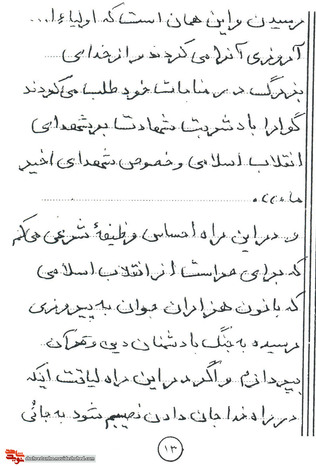 رسیدن و این همان است که اولیاء ا...
آرزوی آنرا می کردند و از خدای
بزرگ در مناجات خود طلب می کودند
گوارا باد شربت شهادت بر شهدای
انقلاب اسلامی و خصوص شهدای اخیر
و در این راه احساس وظیفهٔ شرعی میکنم
که برای حراست از انقلاب اسلامی
که با خون هزاران جوان به پیروزی
رسیده به جنگ با دشمنان دین و قرآن
بپردازم و اگر در این راه لیاقت اینکه
در راه خدا جان دادن نصیبم شود به جائی
۱۳